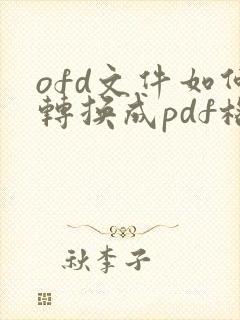 ofd文件如何
轉換成pdf格
秋李子